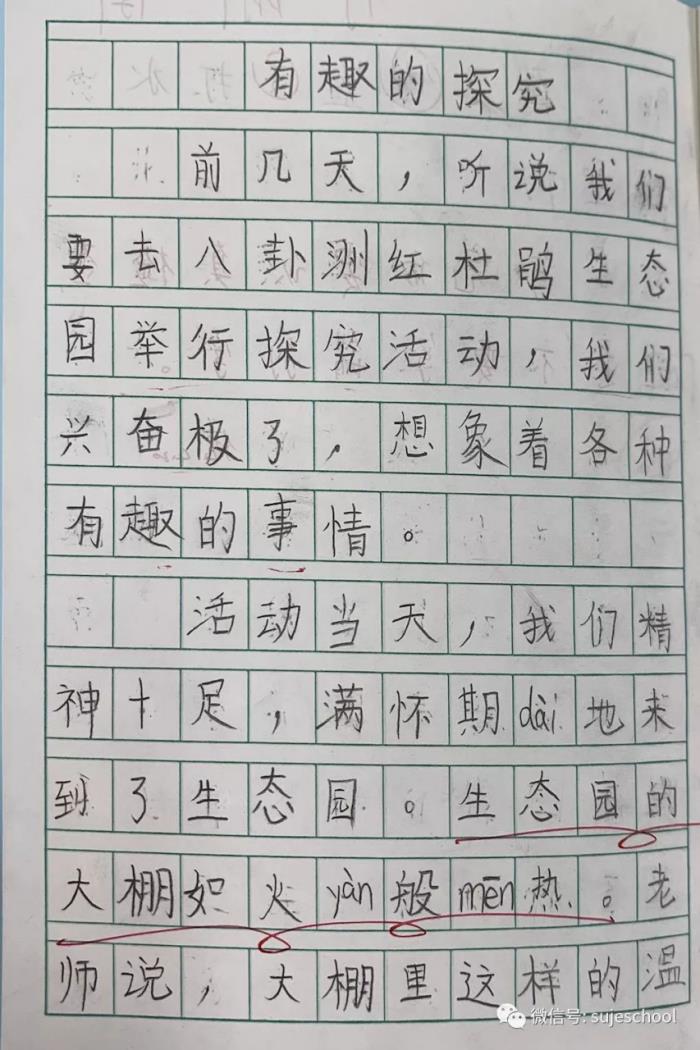 有趣的探究
前几天，听说我们
要去八卦洲红杜鹃生态
园举行探究活动，我们
兴奋极了，想象着各种
有趣的事情。
活动当天，我们精
神十足，满怀期dài地来
到了生态园。生态园的
大棚如火yàn般mēn热。老
师说，大棚里这样的温
微信号: sujeschool